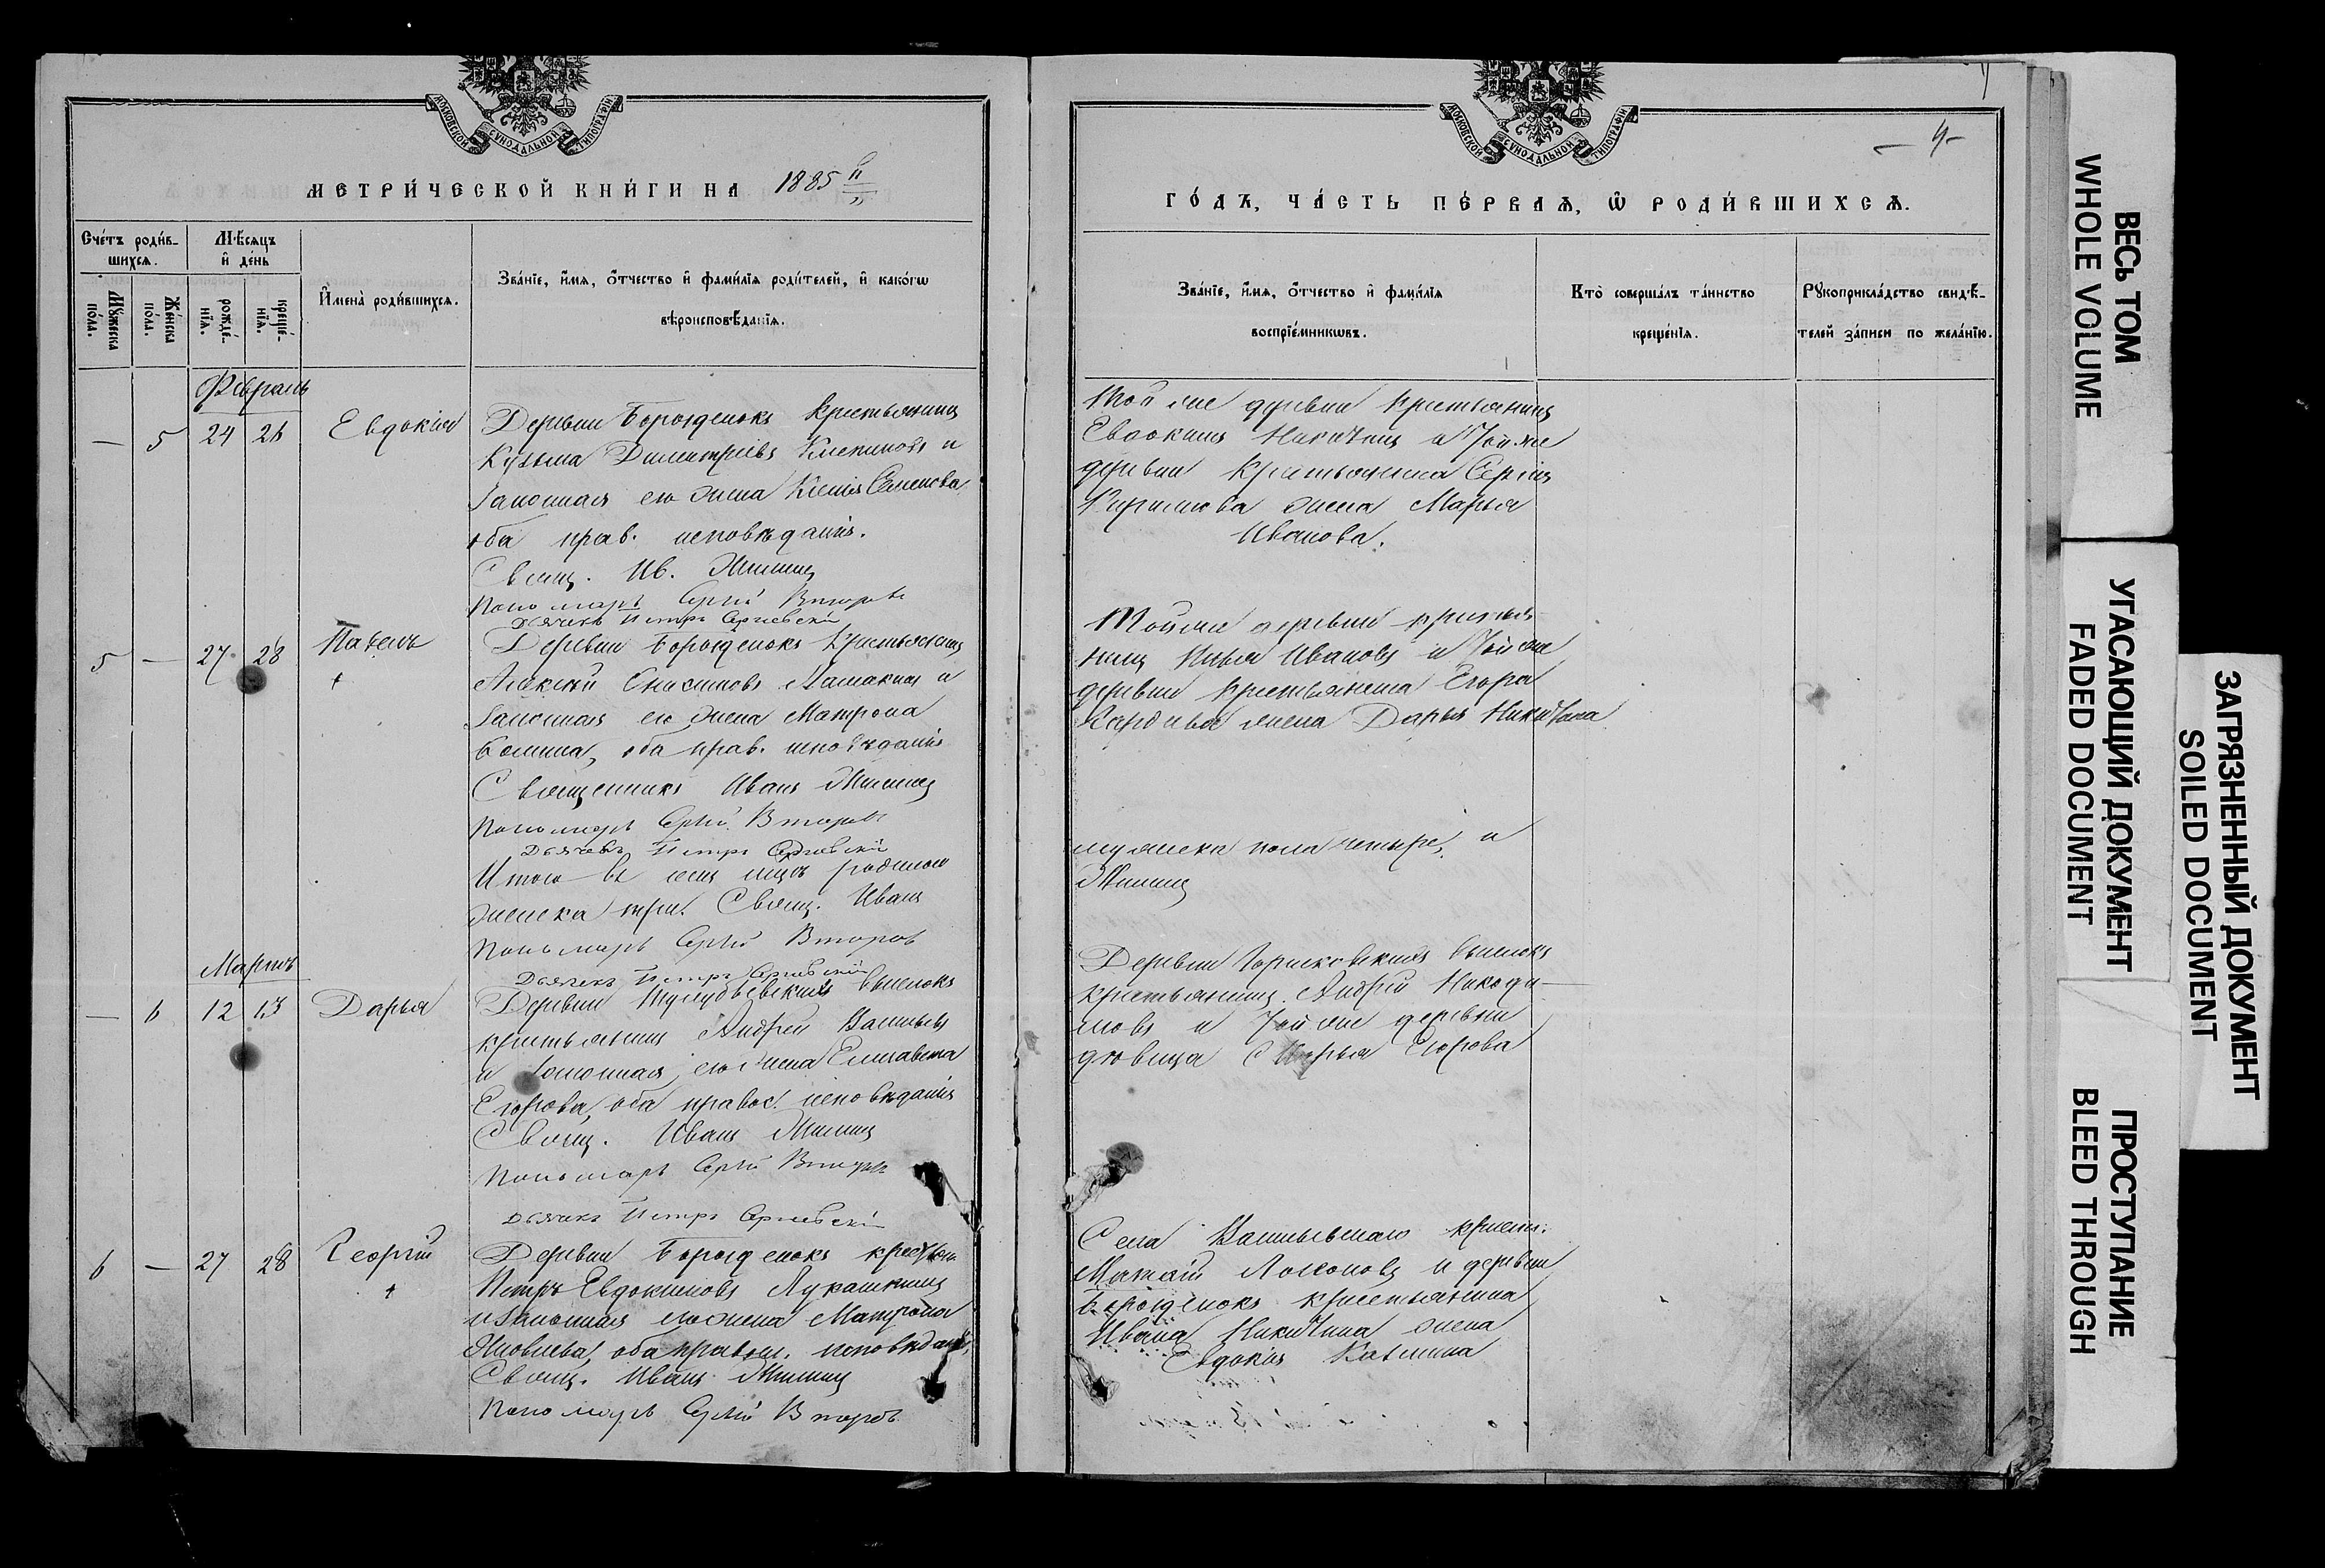 МОСКОВСКОЙ СѴНОДАЛЬНОЙ ТИПОГРАФІИ
МЕТРИ́ЧЕСКОЙ КНИ́ГИ НА 1885й
Сче́тъ роди́в-
шихсѧ.
Мѣ́сѧцъ
и҆ де́нь
Мꙋ́жеска
по́ла.
Же́нска
по́ла.
рожде́-
нїѧ.
креще́-
нїѧ.
И҆мена̀ роди́вшихсѧ.
Зва́нїе, и҆́мѧ, ѻ҆́тчество и҆ фами́лїѧ роди́телей, и҆ како́гѡ
вѣроисповѣ́данїѧ.
Февраль
— 5 24 26 Евдокія
Деревни Борозденокъ крестьянинъ
Кузьма Димитріевъ и
законная его жена Ксенія Семенова
оба прав. исповѣданія.
Свящ. Ив. Жилинъ
Пономарь Сергѣй Второвъ
Дьячекъ Петръ Сергіевскій
5 — 27 28 Павелъ
Деревни Борозденокъ крестьянинъ
Алексѣй Онисимовъ и
законная его жена Матрона
оба прав. исповѣданія
Священникъ Иванъ Жилинъ
Пономарь Сергѣй Второвъ
Дьячекъ Петръ Сергіевскій
Итого въ семъ родилось
женска три. Свящ. Иванъ
Пономарь Сергѣй Второв
Дьячекъ Петръ Сергіевскій
Мартъ
— 6 12 13 Дарья
Деревни выселокъ
крестьянинъ Андрей Васильевъ
и законная его жена Елизавета
Егорова, оба правос. исповѣданія
Свящ. Иванъ Жилинъ
Пономарь Сергѣй Второвъ
Дьячекъ Петръ Сергіевскій
6 — 27 28 Георгій
Деревни Борозденокъ крестьян.
Петръ Евдокимовъ Лукашкинъ
и законная его жена Матрона
Яковлева, оба правосл. исповѣданія,
Свящ. Иванъ Жилинъ
Пономарь Сергѣй Второвъ
МОСКОВСКОЙ СѴНОДАЛЬНОЙ ТИПОГРАФІИ
— 4 —
ГО́ДЪ, ЧА́СТЬ ПЕ́РВАѦ, Ѡ҆ РОДИ́ВШИХСѦ.
Зва́нїе, и҆́мѧ, ѻ҆́тчество и҆ фами́лїѧ
воспрїе́мникѡвъ.
Кто̀ соверша́лъ та́инство
креще́нїѧ.
Рꙋкоприкла́дство свидѣ́-
телей за́писи по жела́нїю.
Той же деревни крестьянинъ
Евдокимъ Никитинъ и той же
деревни крестьянина Сергія
Кирилова жена Марья
Иванова.
Той же деревни крестья-
нинъ Илья Ивановъ и той же
деревни крестьянина Егора
жена Дарья Никитина
мужска пола четыре, и
Жилинъ
Деревни выселокъ
крестьянинъ Андрей Никоди-
мовъ и той же деревни
дѣвица Марья Егорова
Села Васильевскаго крест.
и деревни
Борозденокъ крестьянина
Ивана Никитина жена
Евдокія
ВЕСЬ ТОМ
WHOLE VOLUME
УГАСАЮЩИЙ ДОКУМЕНТ
FADED DOCUMENT
ЗАГРЯЗНЕННЫЙ ДОКУМЕНТ
SOILED DOCUMENT
ПРОСТУПАНИЕ
BLEED THROUGH